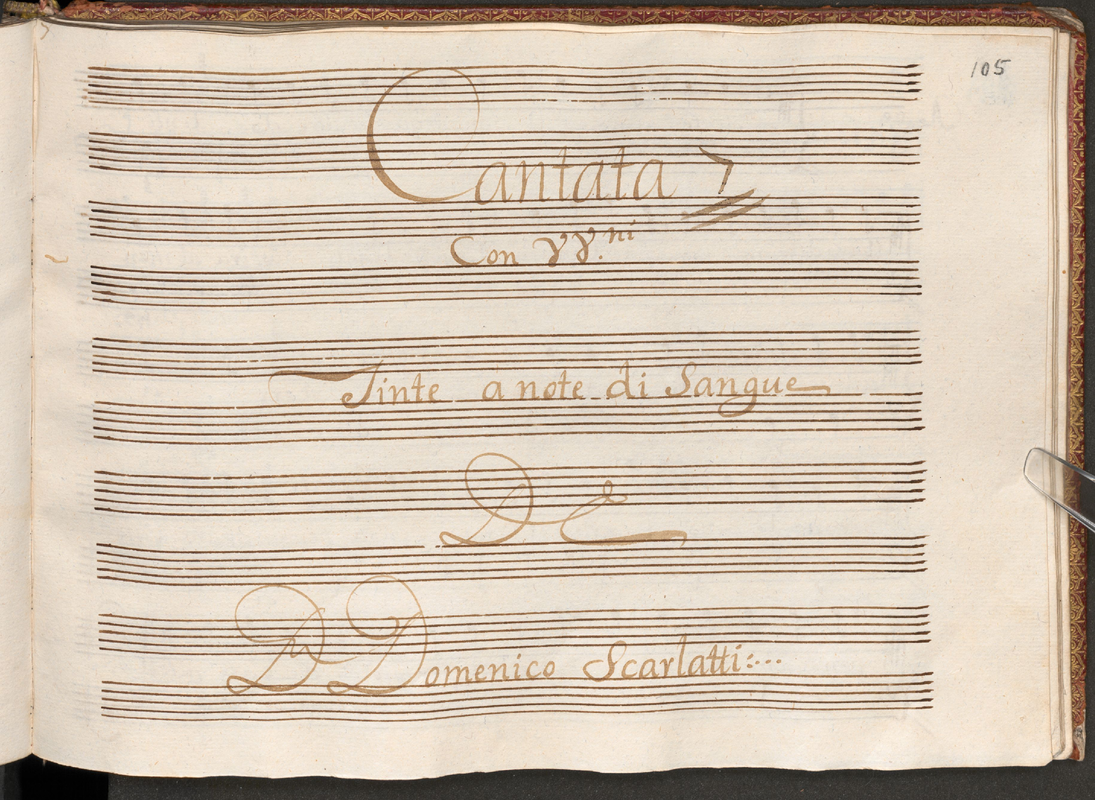 105
Cantata 7
Con VV.ni
Tinte a note di Sangue
Del
D. Domenico Scarlatti:...